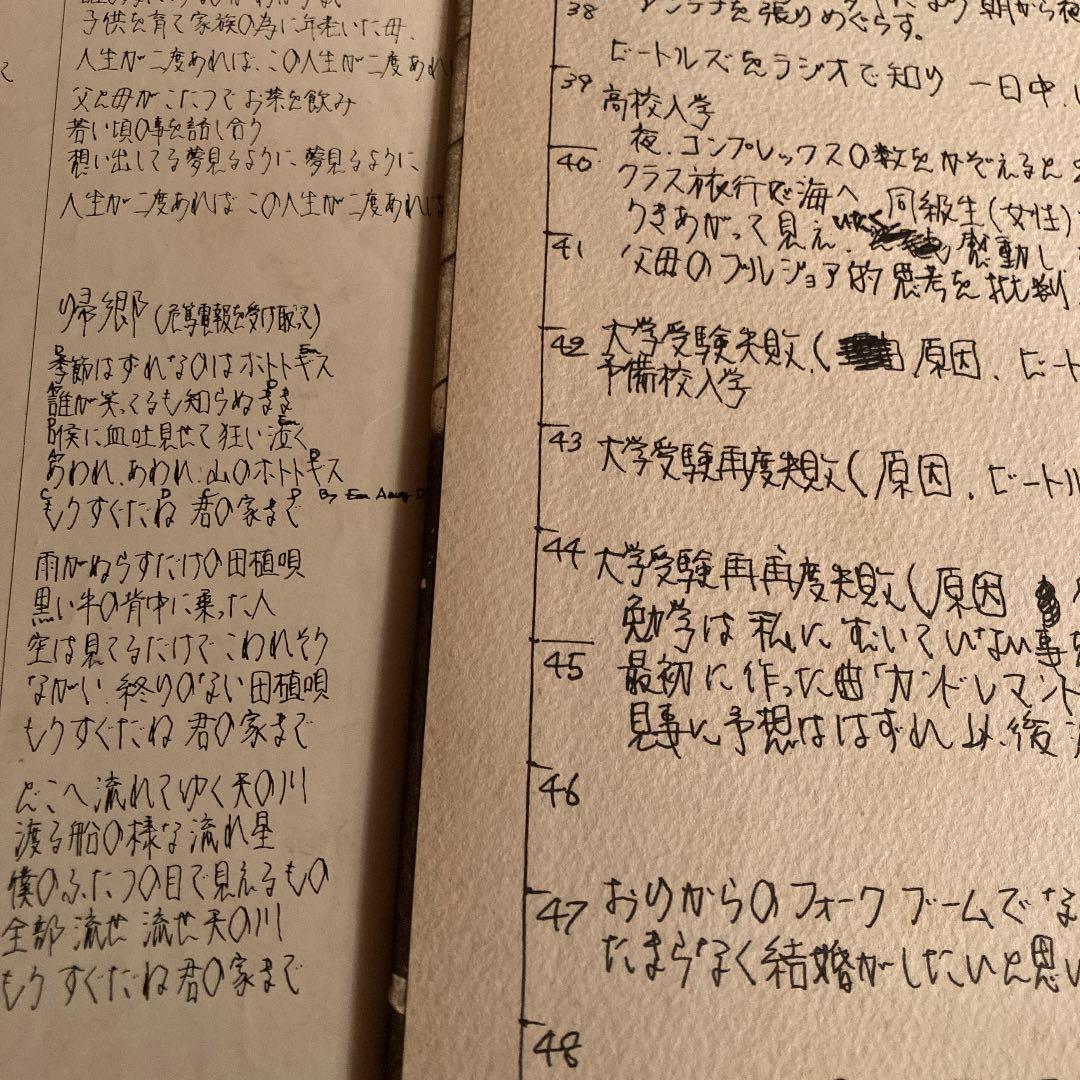 子供を育て家族の為に年老いた母、
人生が二度あれば、この人生が二度あれ
父と母がこたつでお茶を飲み
若い頃の事を話し合う
想い出してる夢見るように、夢見るように、
人生が二度あれば この人生が二度あれば
帰郷(危篤電報を受け取って)
季節はずれなのはホトトギス
誰が笑ってるも知らぬまま
喉に血吐見せて狂い泣く
あわれ、あわれ、山のホトトギス
もうすぐだね 君の家まで
雨がぬらすだけの田植唄
黒い牛の背中に乗った人
空は見てるだけで こわれそう
ながい 終りのない田植唄
もうすぐだね 君の家まで
どこへ流れてゆく天の川
渡る船の様な流れ星
僕のふたつの目で見えるもの
全部 流せ 流せ天の川
もうすぐだね君の家まで
38
アンテナを張りめぐらす。
ビートルズをラジオで知り 一日中、
39
高校入学
夜、コンプレックスの数をかぞえると
40
クラス旅行で海へ 同級生(女性)
うきあがって見え、感動し
41
父母のブルジョア的思考を批判
42 大学受験失敗、( 原因、ビート
予備校入学
43
大学受験再度失敗(原因、ビートル
44
大学受験再再度失敗(原因
勉学は私にむいていない事を
45
最初に作った曲「カンドレマンド
見事に予想ははずれ 以後
46
47 おりからのフォークブームでな
たまらなく結婚がしたいと思い
48